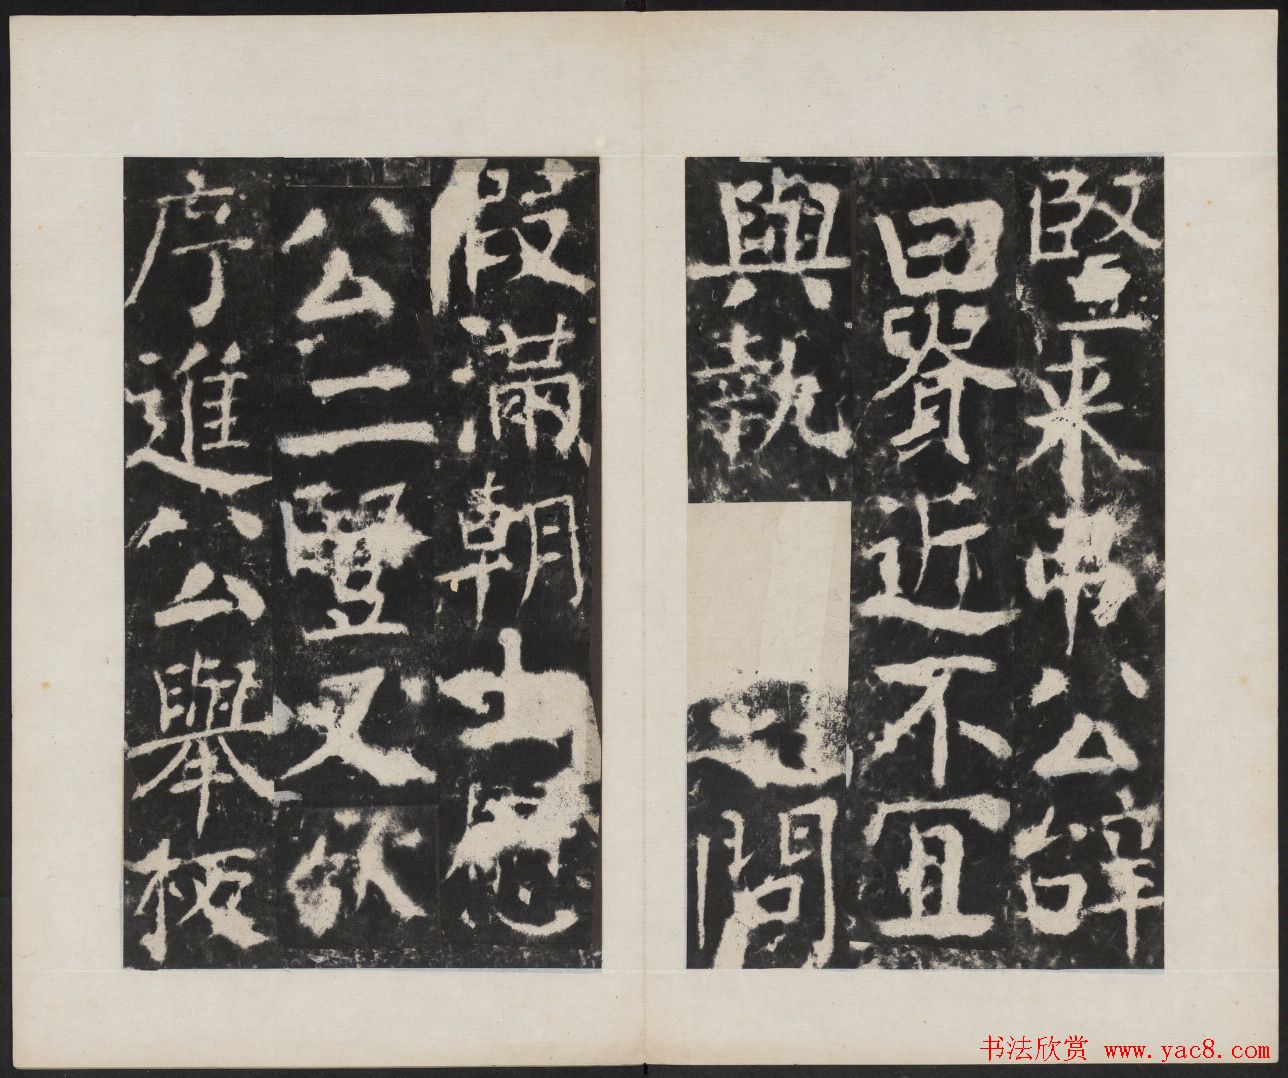 竪来弔公辭
曰近不宜
與執問
假滿朝士
公二豎又欲
序進公舉板
书法欣赏 www.yac8.com